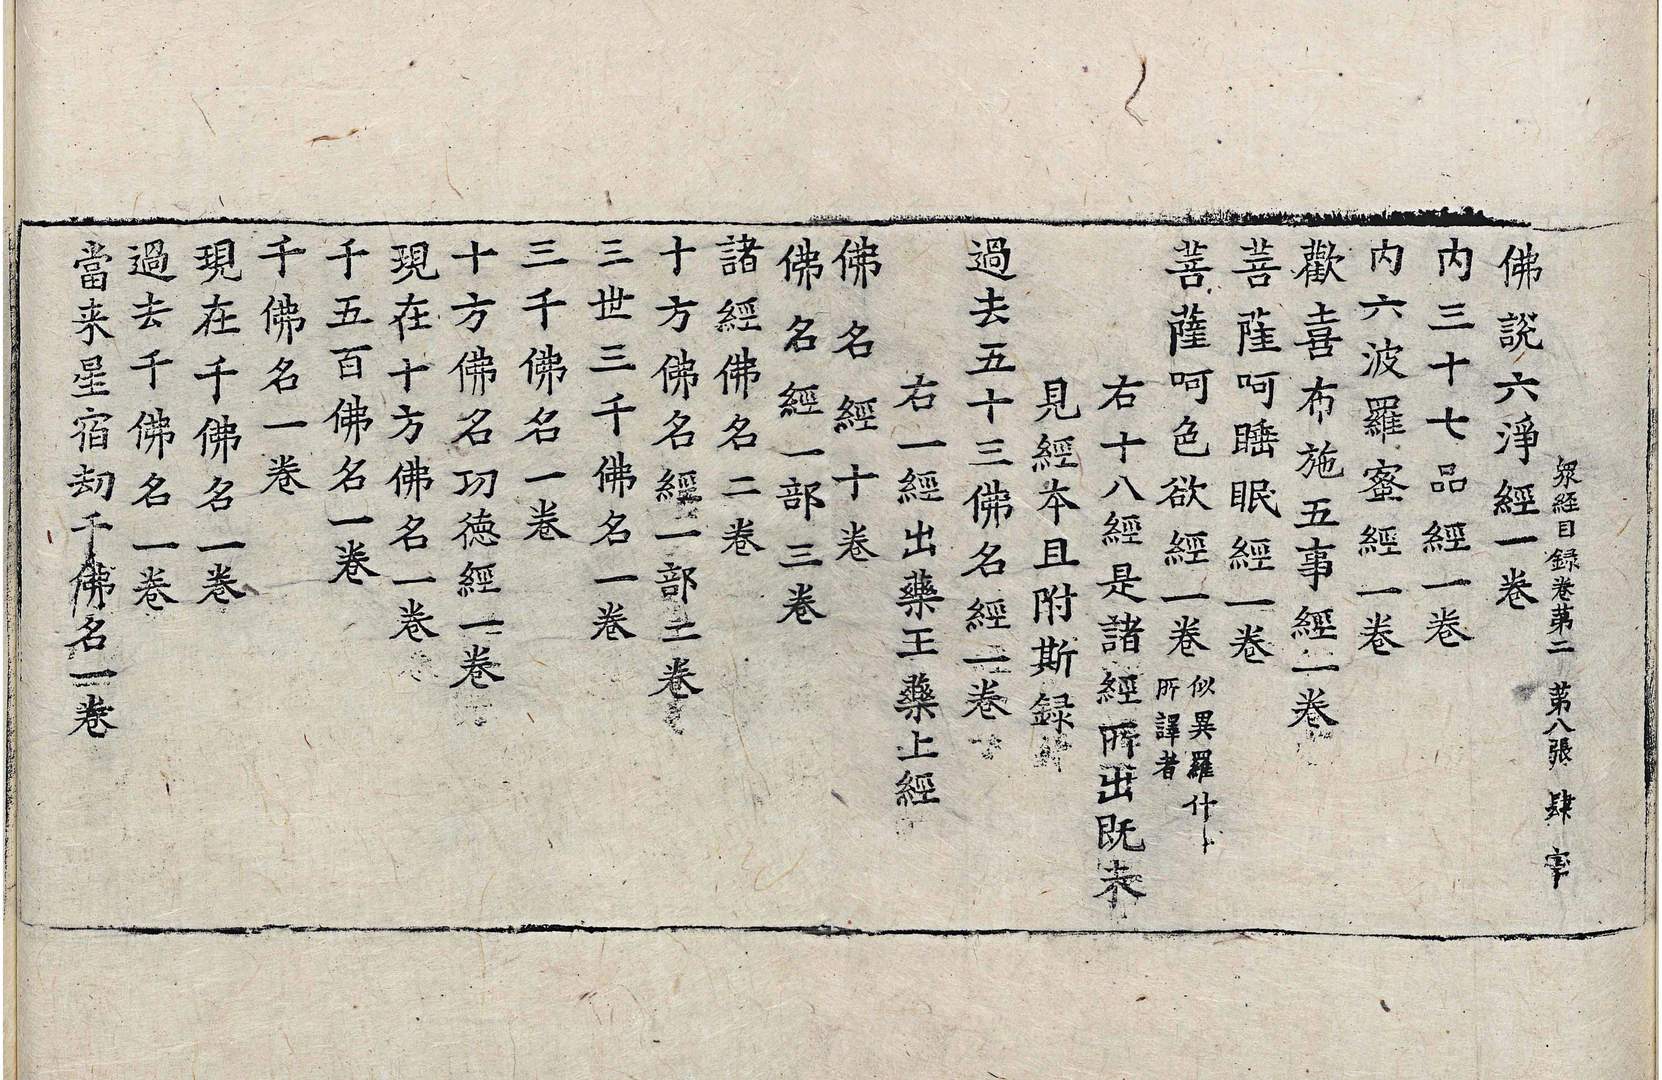 衆經目録卷第二 第八張 肆 字
佛說六淨經一卷
内三十七品經一卷
内六波羅蜜經一卷
歡喜布施五事經一卷
菩薩呵睡眠經一卷
菩薩呵色欲經一卷 似異羅什 所譯者
右十八經是諸經所出既未
見經本且附斯録
過去五十三佛名經一卷
右一經出藥王藥上經
佛名經十卷
佛名經一部三卷
諸經佛名二卷
十方佛名經一部二卷
三世三千佛名一卷
三千佛名一卷
十方佛名功德經一卷
現在十方佛名一卷
千五百佛名一卷
千佛名一卷
現在千佛名一卷
過去千佛名一卷
當来星宿刧千佛名一卷